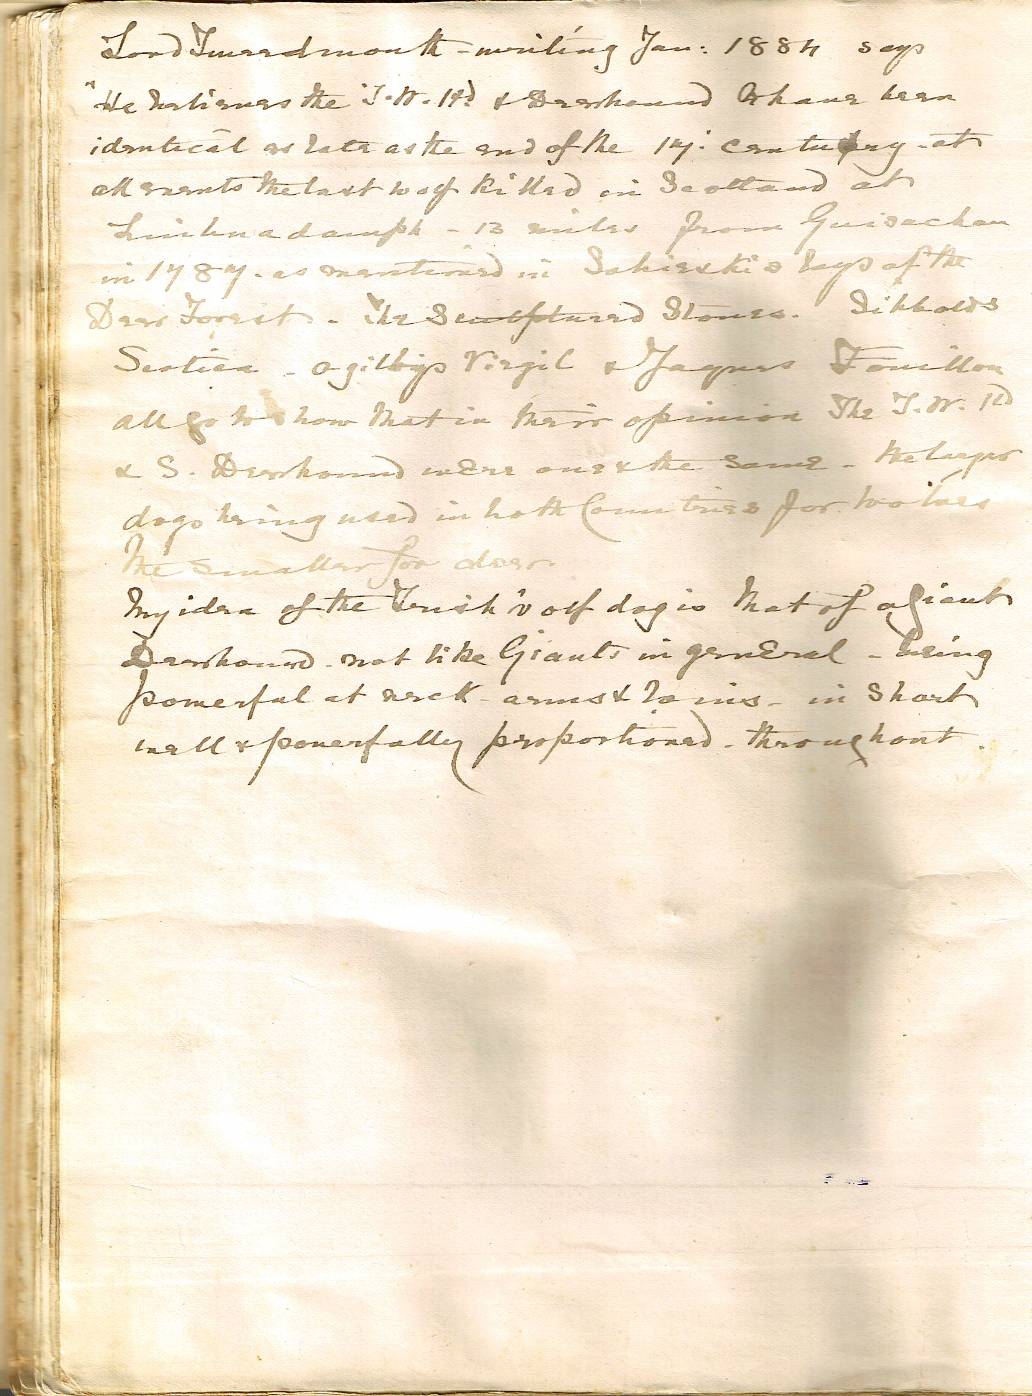 Lord Tweedmouth - writing Jan: 1884 says
"He believes the I.W.Hd & Deerhound to have been
identical as late as the end of the 17: century - at
all events the last wolf killed in Scotland at
- 13 miles from Guisachan
in 1787 - as mentioned in Sobieski's Lays of the
Deer Forest. - The Sculptured Stones. Sibbald's
Scotica - Ogilby's Virgil & Jaques Fouillou
all go to show that in their opinion The I.W.Hd
& S. Deerhound were one & the same - the larger
dogs being used in both Countries for wolves
the smaller for deer.
My idea of the Irish Wolf dog is that of a Giant
Deerhound - not like Giants in general - being
powerful at neck - arms & loins - in short
well & powerfully proportioned - throughout.